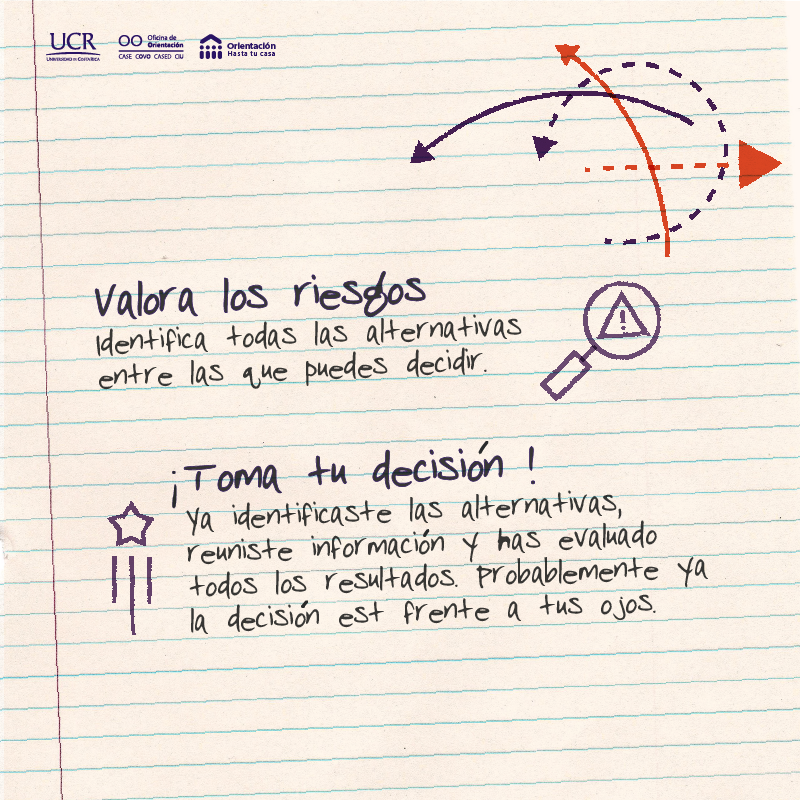 UCR
UNIVERSIDAD DE COSTA RICA
Oficina de
Orientación
CASE COVO CASED CIU
Orientación
Hasta tu casa
Valora los riesgos
Identifica todas las alternativas
entre las que puedes decidir.
¡Toma tu decisión!
Ya identificaste las alternativas,
reuniste información y has evaluado
todos los resultados. Probablemente ya
la decisión est frente a tus ojos.